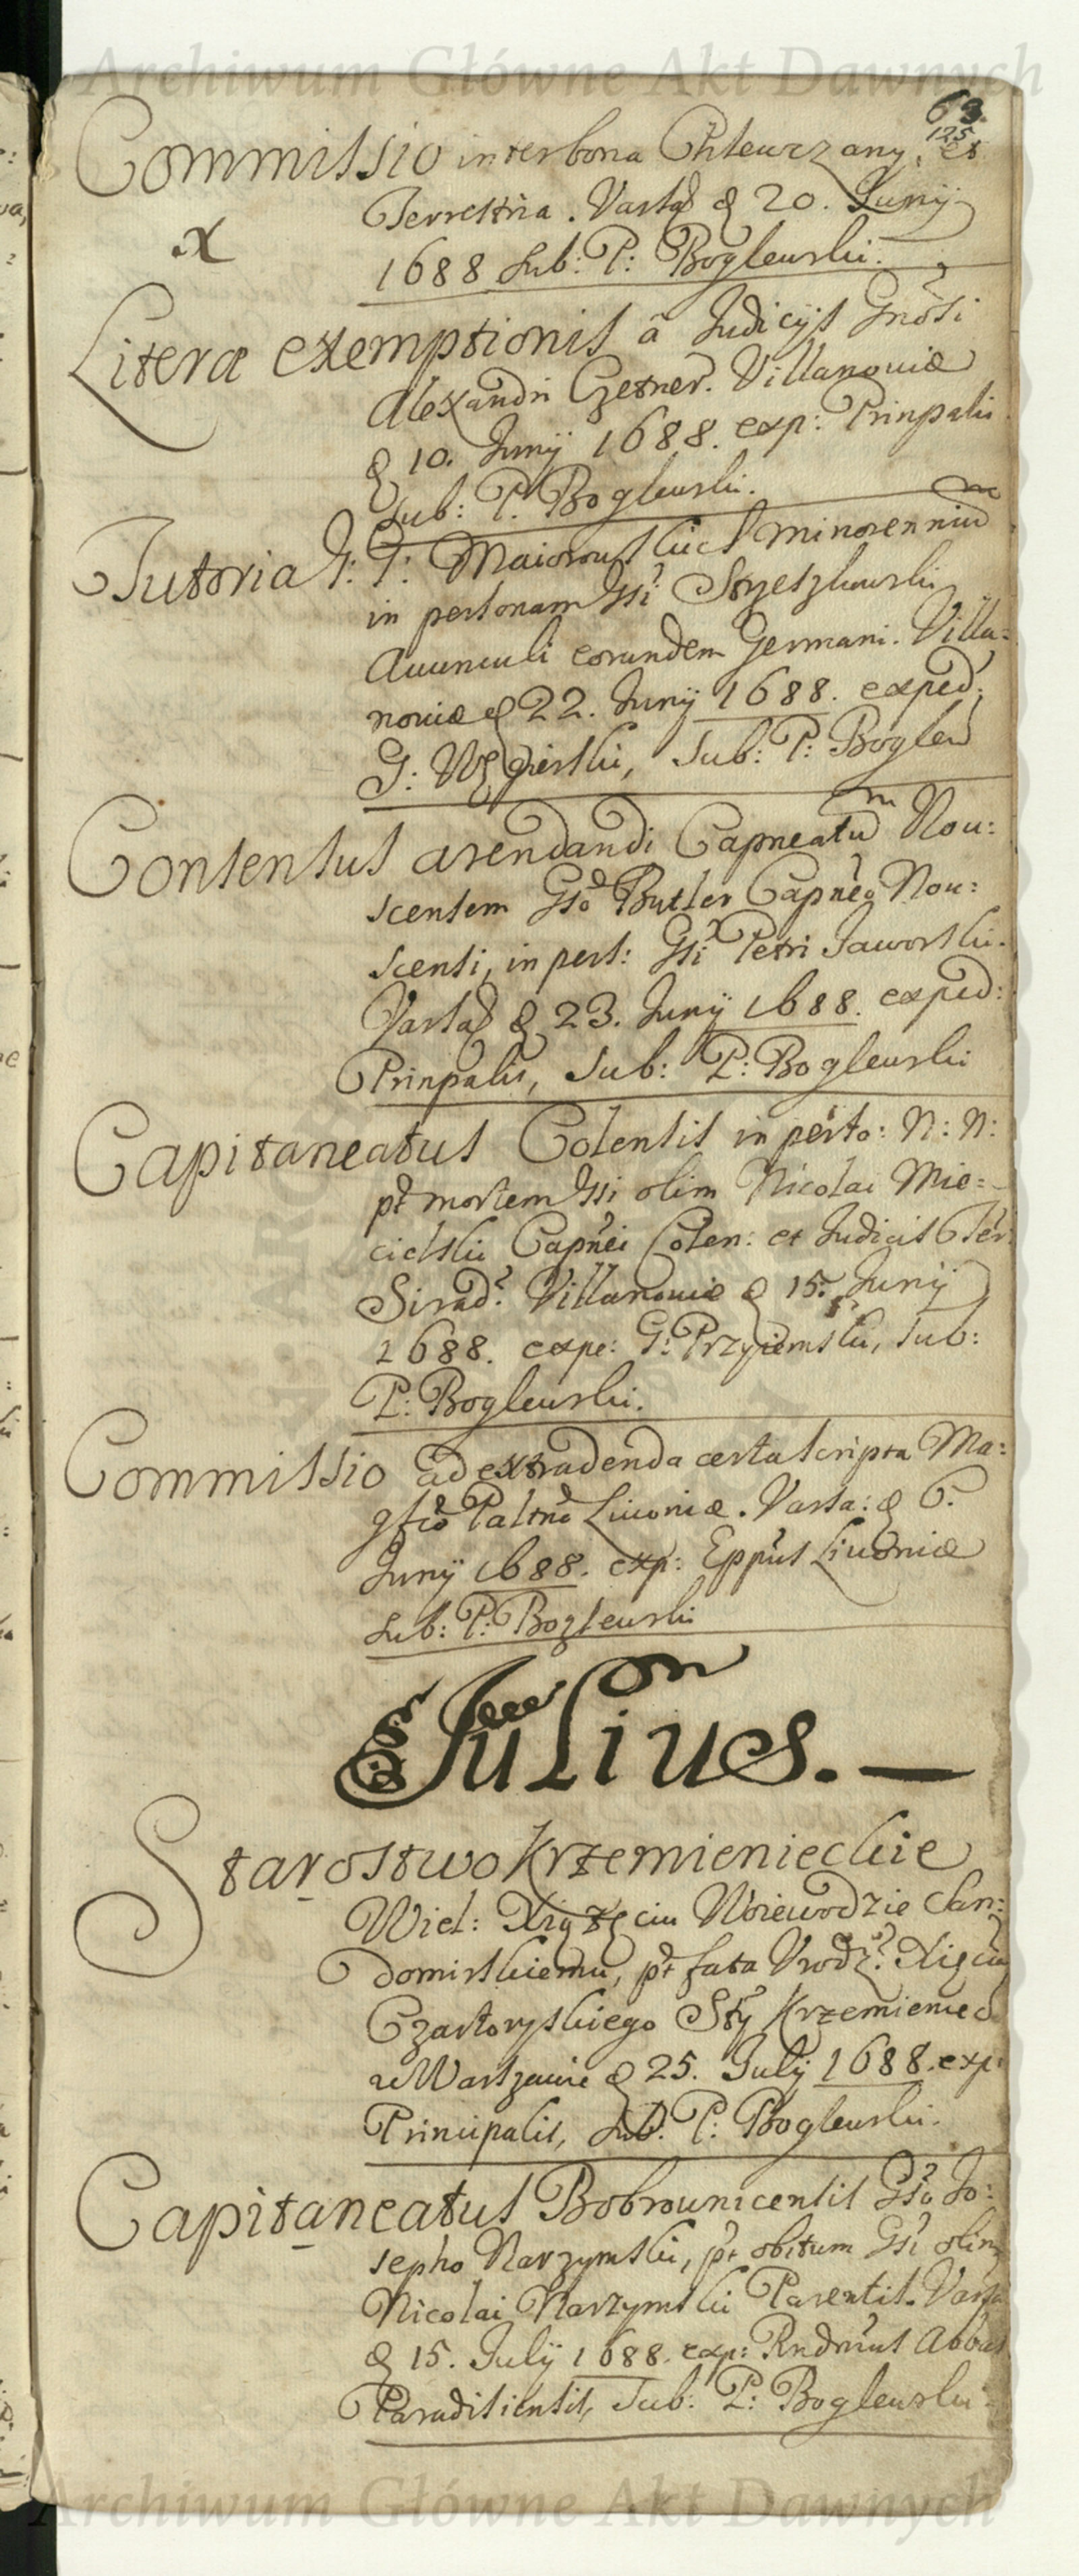 Archiwum Główne Akt Dawnych
63.
125
Commissio inter bona Chlewczany, et
Terrestria. Varsa d 20. Junij
1688 sub: P: Boglewski.
X
Literæ exemptionis â Judicijs Gnosi
Alexandri Czetner. Villanoviæ
d 10. Junij 1688. exp: Prinpalis
sub: P: Boglewski.
Tutoria G: G: Maiorowskich minorenniu
in personam Gsi Strzeszkowski
Avunculi eorundem Germani. Villa:
noviæ d 22. Junij 1688. exped:
G: Węgierski, Sub: P: Boglew
Consensus arendandi Capneatum Nou:
scensem Gso Butler Capneo Nou:
scensi, in pers: Gsi Petri Jaworski.
Varsa d 23. Junij 1688. exped:
Prinpalis, Sub: P: Boglewski
Capitaneatus Colensis in perso: N: N:
pt mortem Gsi olim Nicolai Mie=
cielski Capnei Colen: et Judicis Ter:
Sirad: Villanoviæ d 15. Junij
1688. expe: G: Przyiemski, Sub:
P: Boglewski.
Commissio ad extradenda certa scripta Ma:
gfco Paltno Livoniæ. Varsa: d 6.
Junij 1688. exp: Eppus Livoniæ
sub: P: Boglewski
Julius. —
Starostwo Krzemienieckie
Wiel: Xiążęciu Woiewodzie San:
domirskiemu, pt fata Vrodz: Xięcia
Czartoryskiego Sty Krzemieniec
w Warszawie d 25. Julij 1688. exp:
Principalis, sub. P: Boglewski.
Capitaneatus Bobrownicensis Gso Jo:
sepho Narzymski, pt obitum Gsi olim
Nicolai Narzymski Parentis. Varsa
d 15. July 1688. exp: Rndmus Abbas
Paradisiensis, Sub: P: Boglewski
Archiwum Główne Akt Dawnych